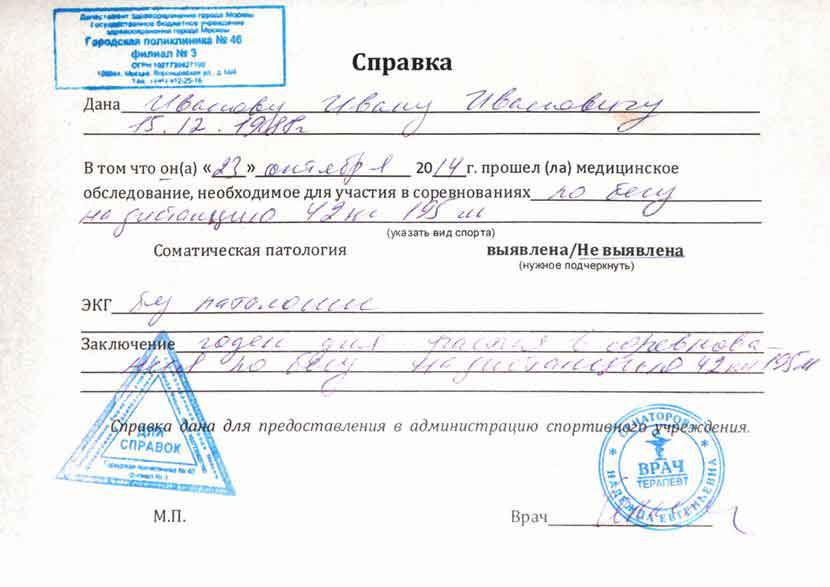 Департамент здравоохранения города Москвы
Государственное бюджетное учреждение
здравоохранения города Москвы
Городская поликлиника № 46
филиал № 3
Справка
Дана Иванову Ивану Ивановичу
15.12.1988г
В том что он(а) «23» октября 2014г. прошел (ла) медицинское
обследование, необходимое для участия в соревнованиях по бегу
на дистанцию 42 км 195 м
(указать вид спорта)
Соматическая патология выявлена/Не выявлена
(нужное подчеркнуть)
ЭКГ без патологии
Заключение годен для участия в соревнова-
ниях по бегу на дистанцию 42 км 195 м
Справка дана для предоставления в администрацию спортивного учреждения.
ДЛЯ
СПРАВОК
Городская поликлиника № 46
ВРАЧ
ТЕРАПЕВТ
НАДЕЖДА ЕВГЕНЬЕВНА
М.П. Врач